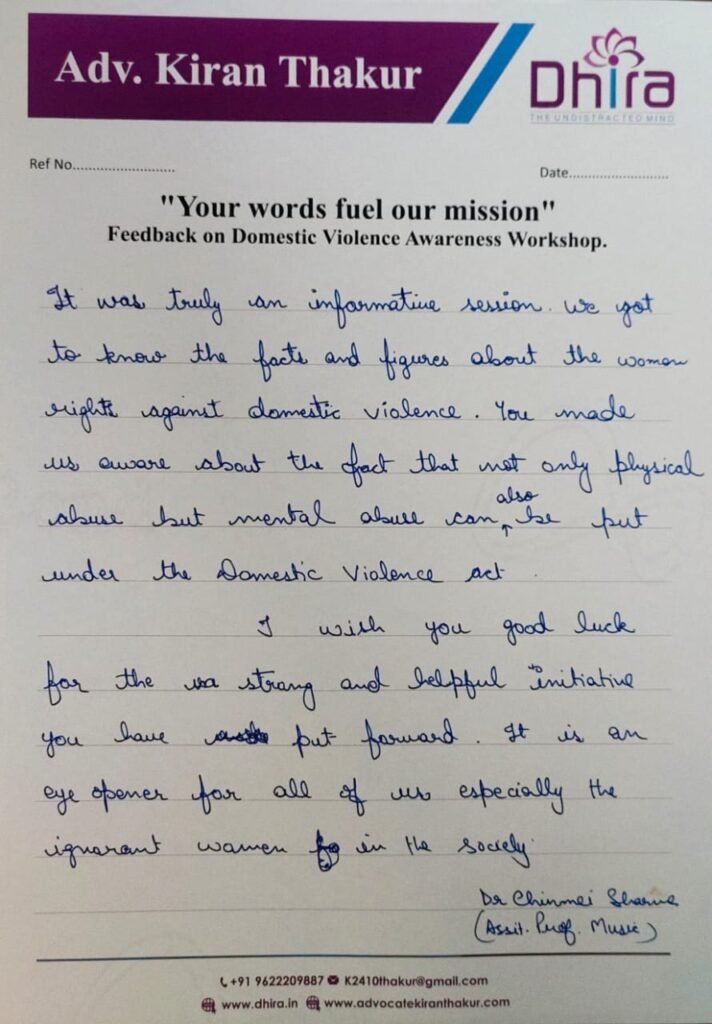 Adv. Kiran Thakur
Dhira
THE UNDISTRACTED MIND
Ref No..........................
Date.........................
"Your words fuel our mission"
Feedback on Domestic Violence Awareness Workshop.
It was truly an informative session. We got
to know the facts and figures about the women
rights against domestic violence. You made
us aware about the fact that not only physical
also
abuse but mental abuse can be put
under the Domestic Violence act.
I wish you good luck
for the strong and helpful initiative
you have put forward. It is an
eye opener for all of us especially the
ignorant women in the society.
Dr Chinmei Sharma
(Assit. Prof. Music)
+91 9622209887 K2410thakur@gmail.com
www.dhira.in www.advocatekiranthakur.com